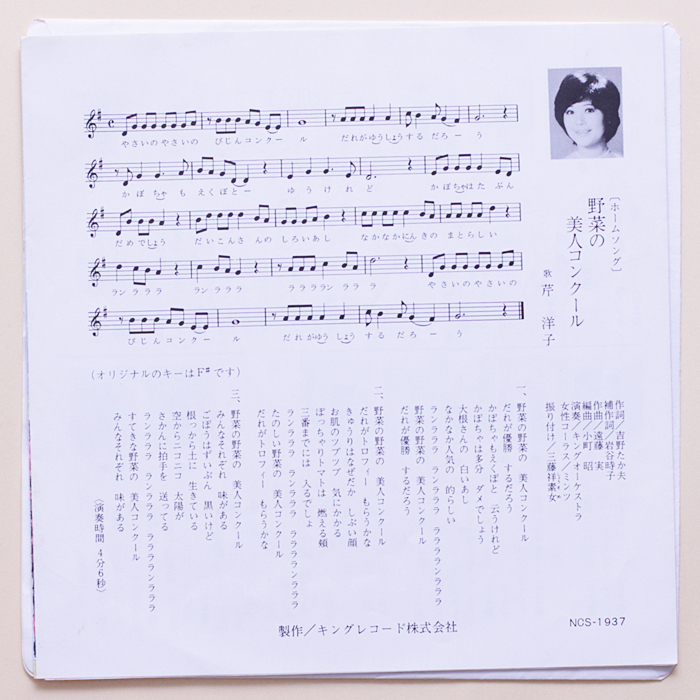 〔ホームソング〕
野菜の
美人コンクール
歌 芹 洋子
作詞／吉野たか夫
補作詞／岩谷時子
作曲／遠藤 実
編曲／小町 昭
演奏／キングオーケストラ
女性コーラス／ミンツ
振り付け／三藤祥素女
やさいのやさいの びじんコンクール だれがゆうしょうするだろーう
かぼちゃも えくぼとー ゆうけれど かぼちゃはたぶん
だめでしょう だいこんさんのしろいあし なかなかにんきのまとらしい
ランラララ ランラララ ララララランラララ やさいのやさいの
びじんコンクール だれがゆうしょうするだろーう
(オリジナルのキーはF#です)
一、野菜の野菜の 美人コンクール
だれが優勝 するだろう
かぼちゃもえくぼと 云うけれど
かぼちゃは多分 ダメでしょう
大根さんの 白いあし
なかなか人気の 的らしい
ランラララ ランラララ ララララランラララ
野菜の野菜の 美人コンクール
だれが優勝 するだろう
二、野菜の野菜の 美人コンクール
だれがトロフィー もらうかな
きゅうりはなぜだか しぶい顔
お肌のツブツブ 気にかかる
ぽっちゃりトマトは 燃える頬
三番までには 入るでしょ
ランラララ ランラララ ララララランラララ
たのしい野菜の 美人コンクール
だれがトロフィー もらうかな
三、野菜の野菜の 美人コンクール
みんなそれぞれ 味がある
ごぼうはずいぶん 黒いけど
根っから土に 生きている
空からニコニコ 太陽が
さかんに拍手を 送ってる
ランラララ ランラララ ララララランラララ
すてきな野菜の 美人コンクール
みんなそれぞれ 味がある
(演奏時間 4分6秒)
NCS-1937
製作／キングレコード株式会社